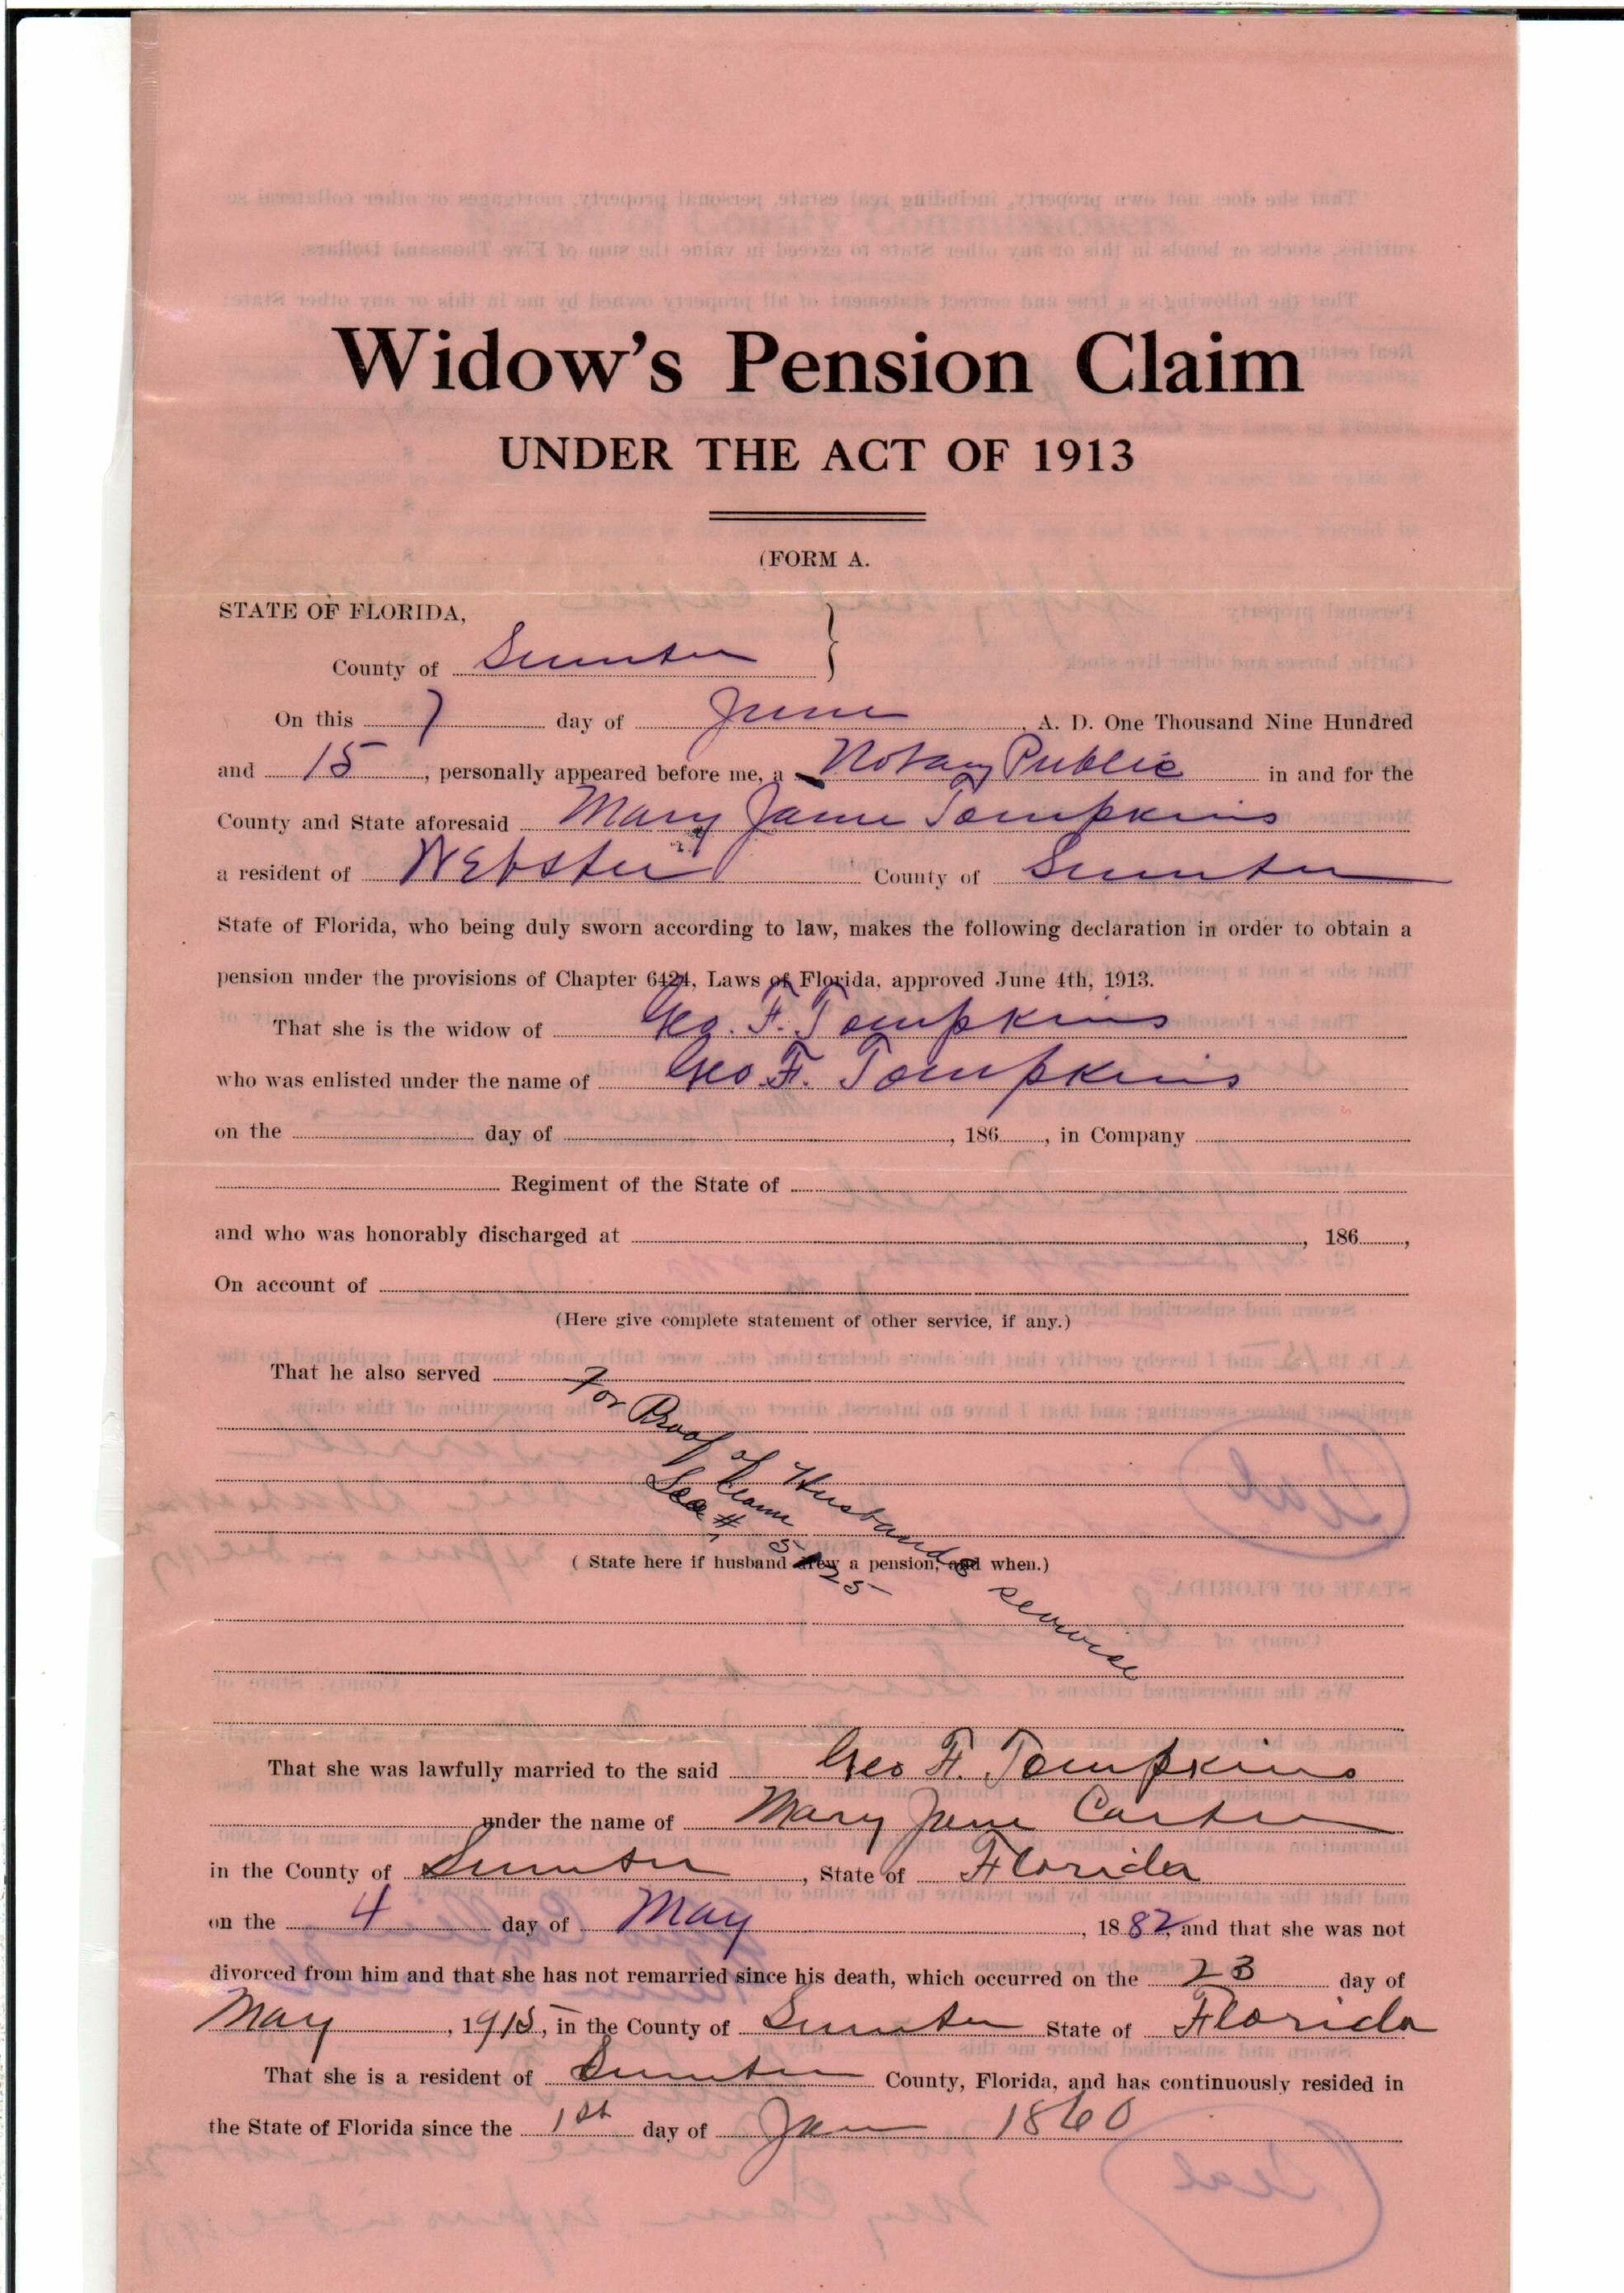 Widow's Pension Claim
UNDER THE ACT OF 1913
(FORM A.
STATE OF FLORIDA,
County of Sumter
On this 7 day of June, A. D. One Thousand Nine Hundred
and 15, personally appeared before me, a Notary Public in and for the
County and State aforesaid Mary Jane Tompkins
a resident of Webster County of Sumter
State of Florida, who being duly sworn according to law, makes the following declaration in order to obtain a
pension under the provisions of Chapter 6424, Laws of Florida, approved June 4th, 1913.
That she is the widow of Geo. F. Tompkins
who was enlisted under the name of Geo F. Tompkins
on the day of , 186 , in Company
Regiment of the State of
and who was honorably discharged at , 186 ,
On account of
(Here give complete statement of other service, if any.)
That he also served
For Proof of Husbands service
See # Claim 5125
( State here if husband drew a pension, and when.)
That she was lawfully married to the said Geo F. Tompkins
under the name of Mary Jane Carter
in the County of Sumter, State of Florida
on the 4 day of May, 1882, and that she was not
divorced from him and that she has not remarried since his death, which occurred on the 23 day of
May, 1915, in the County of Sumter State of Florida
That she is a resident of Sumter County, Florida, and has continuously resided in
the State of Florida since the 1st day of Jan 1860